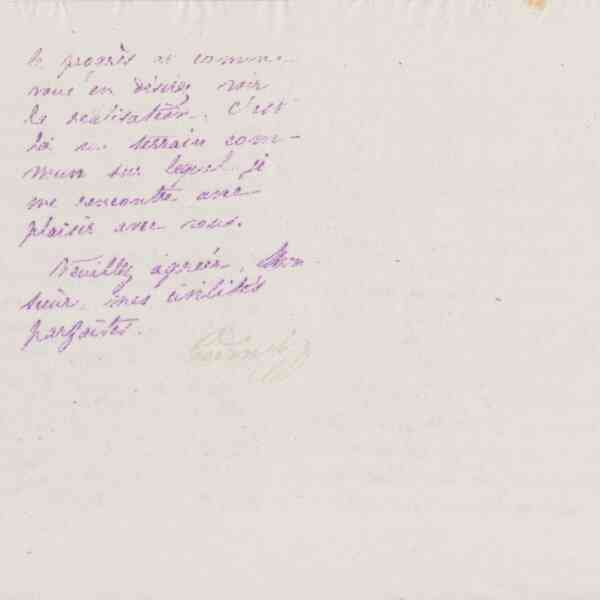 le progrès et comme
vous en désirez voir
la réalisation. C'est
là un terrain com-
mun sur lequel je
me rencontre avec
plaisir avec vous.
Veuillez agréer, Mon
sieur, mes civilités
parfaites.